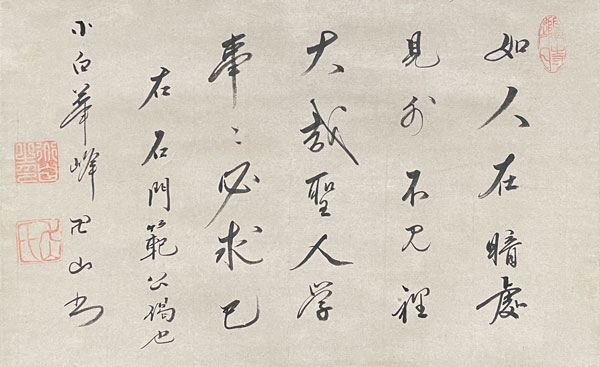 如人在暗處
見外不見裡
大哉聖人学
事〻必求己
右石門範公偈也
小白華峰山書